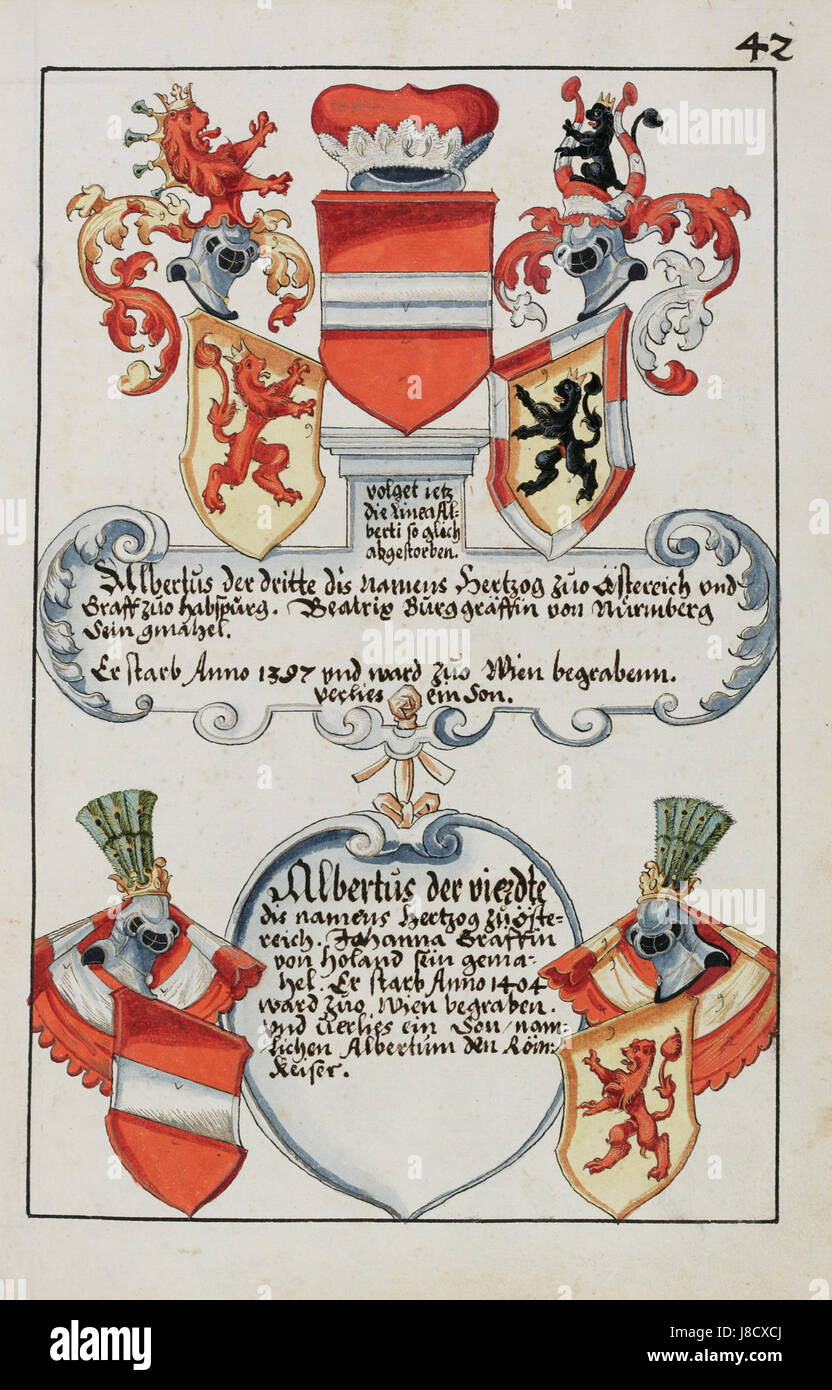 42
volget ietz
die Linea Al-
berti so glich
abgestorben.
Albertus der dritte dis namens Hertzog zuo Östereich vnd
Graff zuo Habspurg. Beatrix Burggräffin von Nürmberg
Sein gmahel.
Er starb Anno 1397 vnd ward zuo Wien begrabenn.
verlies ein Son.
Albertus der vierdte
dis namens Hertzog zu Öste-
reich. Johanna Gräffin
von Holand sein gema-
hel. Er starb Anno 1404
ward zuo Wien begraben.
vnd verlies ein Son/nam-
lichen Albertum den Röm:
Keiser.
alamy
Image ID: J8CXCJ
www.alamy.com